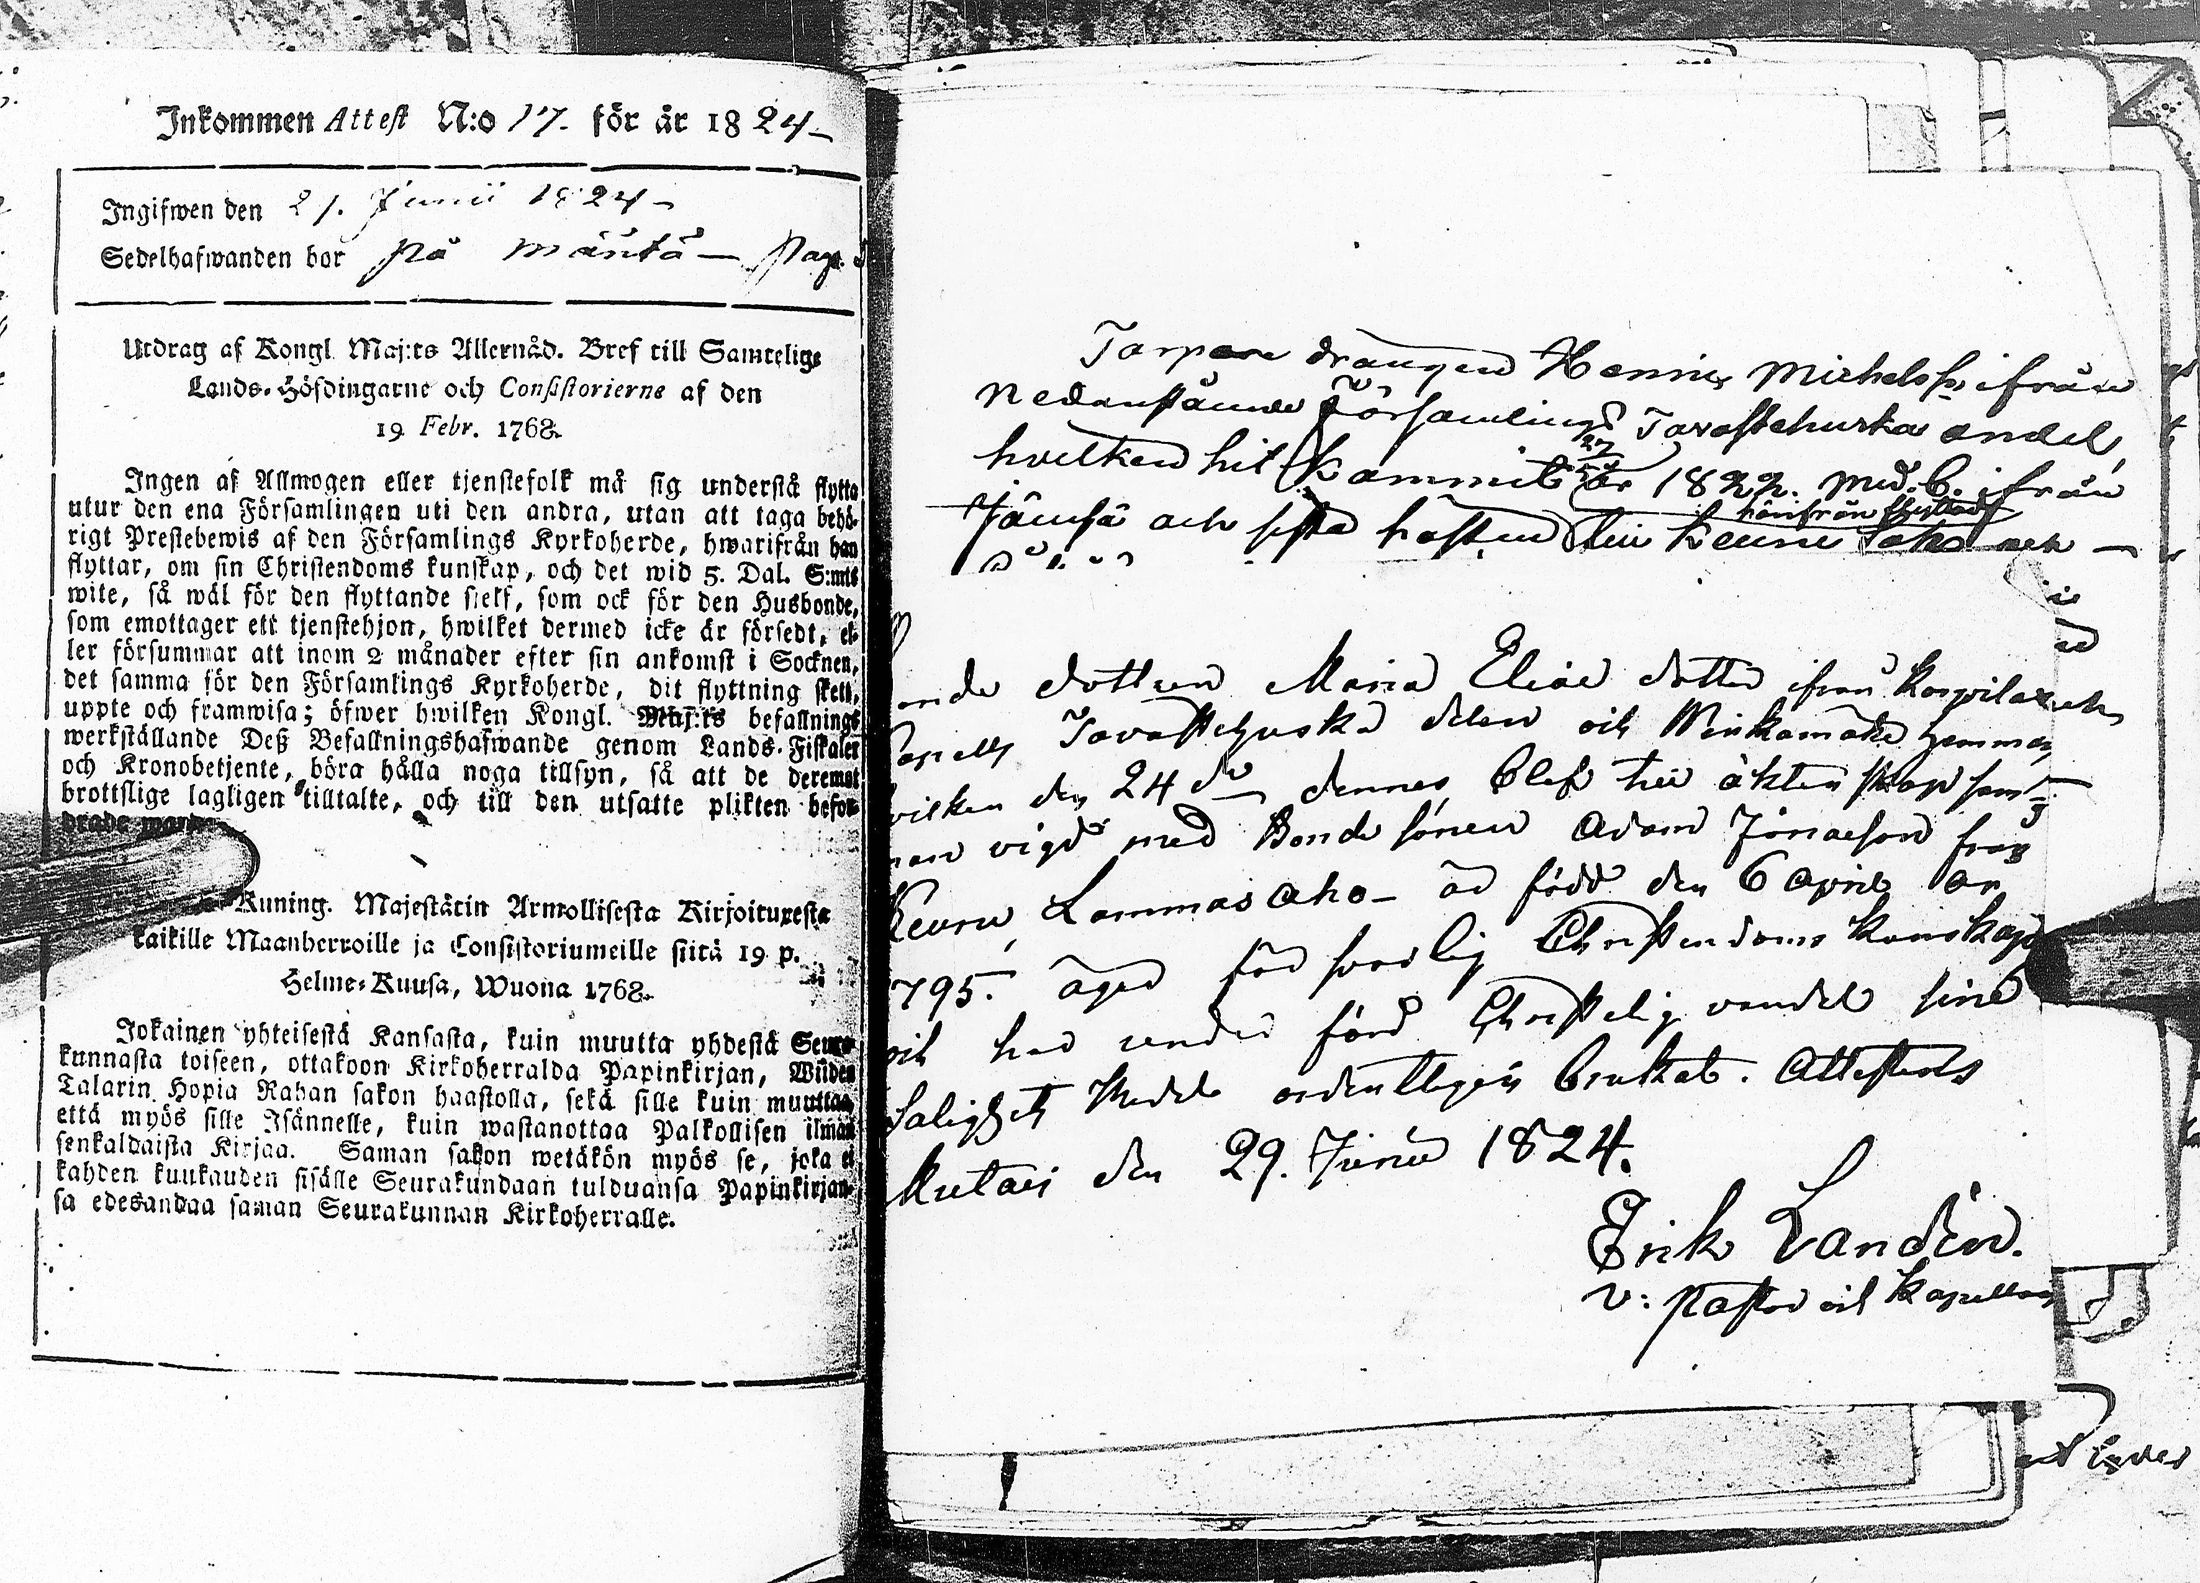 Inkommen Attest N:o 17. för år 1824
Ingifwen den 21. Junii 1824
Sedelhafwanden bor på mänttä Pag.
Utdrag af Kongl Maj:ts Allernåd. Bref till Samtelige
Lands-Höfdingarne och Consistorierne af den
19 Febr. 1768.
Ingen af Allmogen eller tjenstefolk må sig understå flytta
utur den ena Församlingen uti den andra, utan att taga behö-
rigt Prestebewis af den Församlings Kyrkoherde, hwarifrån han
flyttar, om sin Christendoms kunskap, och det wid 5. Dal. S:mts
wite, så wäl för den flyttande sielf, som ock för den Husbonde,
som emottager ett tjenstehjon, hwilket dermed icke är försedt, el-
ler försummar att inom 2 månader efter sin ankomst i Socknen,
det samma för den Församlings Kyrkoherde, dit flyttning skett,
uppte och framwisa; öfwer hwilken Kongl. Maj:ts befallnings
werkställande Deß Befallningshafwande genom Lands-Fiskaler
och Kronobetjente, böra hålla noga tillsyn, så att de deremot
brottslige lagligen tilltalte, och till den utsatte plikten befor-
drade
Kuning. Majestätin Armollisesta Kirjoituxesta
kaikille Maanherroille ja Consistoriumeille siitä 19 p.
Helme-Kuusa, Wuona 1768.
Jokainen yhteisestä Kansasta, kuin muutta yhdestä Seura-
kunnasta toiseen, ottakoon Kirkoherralda Papinkirjan, Wiiden
Talarin Hopia Rahan sakon haastolla, sekä sille kuin muuttaa,
että myös sille Isännelle, kuin wastanottaa Palkollisen ilman
senkaldaista Kirjaa. Saman sakon wetäkön myös se, joka ei
kahden kuukauden sisälle Seurakundaan tulduansa Papinkirjan-
sa edesandaa saman Seurakunnan Kirkoherralle.
Torpare drängen Henric Michelss. ifrån
nedanstående Församlings Tavastehuska andel,
hvilken hit kommit år 1822. med. B. ifrån
härifrån
Jämsä och sista hösten till Keuru och
dottren Maria Elias dotter ifrån Korpilax
Capells Tavastehuska delen och hemman,
hvilken den 24 dennes blef till äktenskap
vigd med Bonde sonen Adam Jonaeson från
Keuru Lammasaho är född den 6 April år
1795. äger försvarlig Christendoms kunskap
och har under förd Christelig vandel sine
Salighets Medel ordentligen brukat. Attesteras
den 29. Junii 1824.
Erik Landén.
v: Pastor och Kapellan